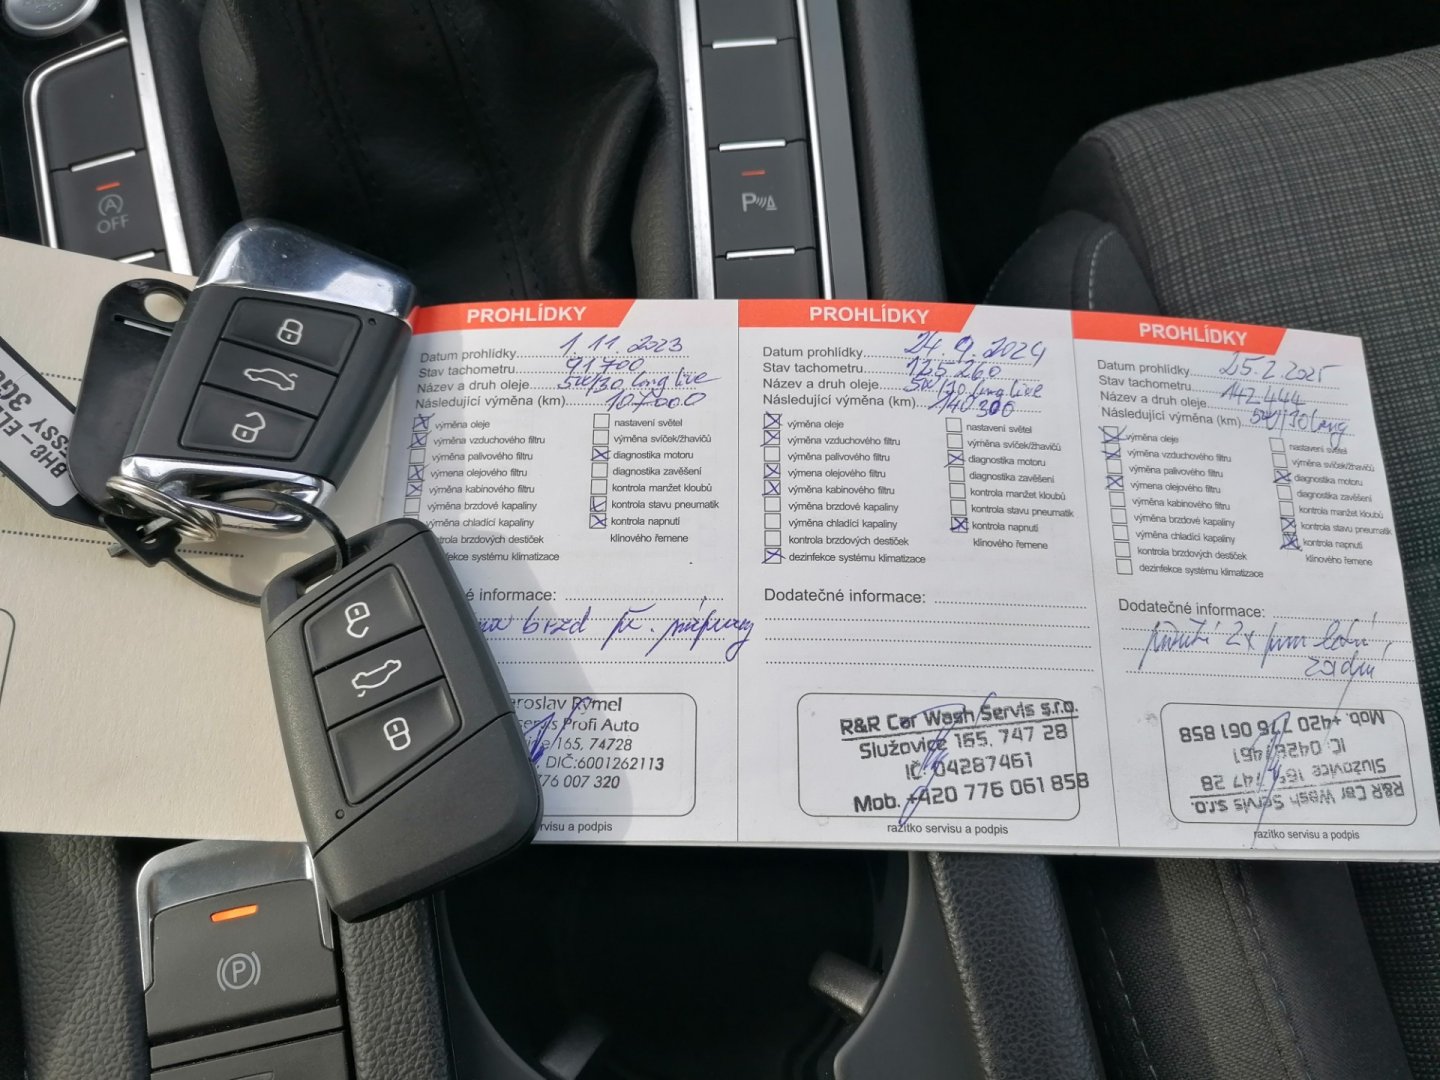 OFF
P
BH8-EL
PROHLÍDKY
Datum prohlídky 1.11.2023
Stav tachometru 91700
Název a druh oleje 5W/30 long live
Následující výměna (km) 107000
výměna oleje
výměna vzduchového filtru
výměna palivového filtru
výmena olejového filtru
výměna kabinového filtru
výměna brzdové kapaliny
výměna chladící kapaliny
kontrola brzdových destiček
dezinfekce systému klimatizace
nastavení světel
výměna svíček/žhavičů
diagnostika motoru
diagnostika zavěšení
kontrola manžet kloubů
kontrola stavu pneumatik
kontrola napnutí
klínového řemene
informace:
brzd př. nápravy
Jaroslav Rýmel
servis Profi Auto
165, 74728
DIČ:6001262113
776 007 320
servisu a podpis
PROHLÍDKY
Datum prohlídky 24.9.2024
Stav tachometru 125260
Název a druh oleje 5W/30 long live
Následující výměna (km) 140300
výměna oleje
výměna vzduchového filtru
výměna palivového filtru
výmena olejového filtru
výměna kabinového filtru
výměna brzdové kapaliny
výměna chladící kapaliny
kontrola brzdových destiček
dezinfekce systému klimatizace
nastavení světel
výměna svíček/žhavičů
diagnostika motoru
diagnostika zavěšení
kontrola manžet kloubů
kontrola stavu pneumatik
kontrola napnutí
klínového řemene
Dodatečné informace:
R&R Car Wash Servis s.r.o.
Služovice 165, 747 28
IČ: 04287461
Mob. +420 776 061 858
razítko servisu a podpis
PROHLÍDKY
Datum prohlídky 25.2.2025
Stav tachometru 142444
Název a druh oleje
Následující výměna (km) 5W/30 long
výměna oleje
výměna vzduchového filtru
výměna palivového filtru
výmena olejového filtru
výměna kabinového filtru
výměna brzdové kapaliny
výměna chladící kapaliny
kontrola brzdových destiček
dezinfekce systému klimatizace
nastavení světel
výměna svíček/žhavičů
diagnostika motoru
diagnostika zavěšení
kontrola manžet kloubů
kontrola stavu pneumatik
kontrola napnutí
klínového řemene
Dodatečné informace:
2x
zadní
R&R Car Wash Servis s.r.o.
Služovice 165, 747 28
IČ: 04287461
Mob. +420 776 061 858
razítko servisu a podpis
P